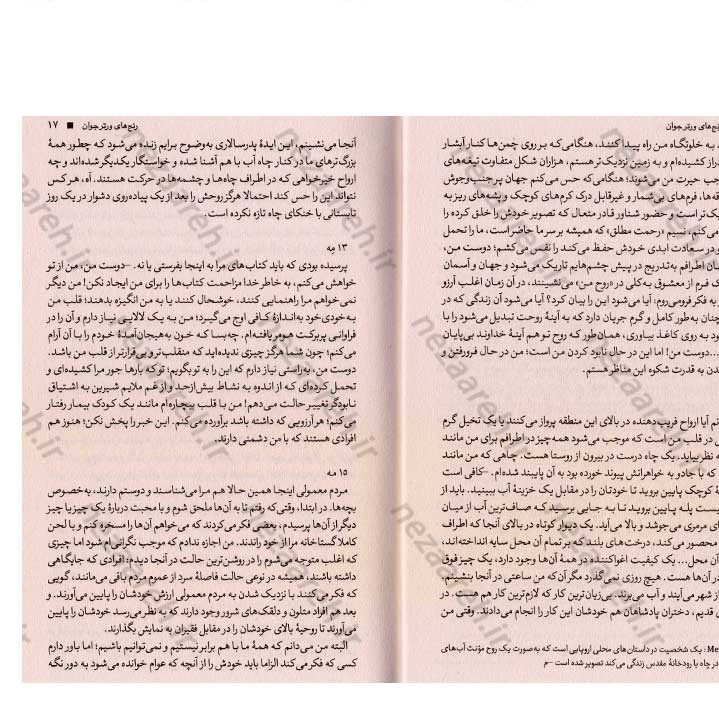 رنج‌های ورتر جوان
به خلوتگاه من راه پیدا کنند، هنگامی‌که بر روی چمن‌ها کنار آبشار
دراز کشیده‌ام و به زمین نزدیک‌تر هستم، هزاران شکل متفاوت تیغه‌های
حیرت من می‌شوند؛ هنگامی‌که حس می‌کنم جهان پر جنب‌وجوش
فرم‌های بی‌شمار و غیرقابل درک کرم‌های کوچک و پشه‌های ریز به
نزدیک‌تر است و حضور شناور قادر متعال که تصویر خودش را خلق کرده را
می‌کنم، نسیم «رحمت مطلق» که همیشه بر سر ما حاضر است، ما را تحمل
در سعادت ابدی خودش حفظ می‌کند را نفس می‌کشم؛ دوست من،
اطرافم به‌تدریج در پیش چشم‌هایم تاریک می‌شود و جهان و آسمان
فرم از معشوق به‌کلی در «روح من» می‌نشینند، در آن زمان اغلب آرزو
به فکر فرومی‌روم: آیا می‌شود این را بیان کرد؟ آیا می‌شود آن زندگی که در
چنان به‌طور کامل و گرم جریان دارد که به آینهٔ روحت تبدیل می‌شود را با
به روی کاغذ بیاوری، همان‌طور که روح تو هم آینهٔ خداوند بی‌پایان
...دوست من! اما این در حال نابود کردن من است؛ من در حال فرورفتن و
به قدرت شکوه این مناظر هستم.
آیا ارواح فریب‌دهنده در بالای این منطقه پرواز می‌کنند یا تخیل گرم
در قلب من است که موجب می‌شود همه‌چیز در اطرافم برای من مانند
به نظر بیاید. یک چاه درست در بیرون از روستا هست. چاهی که من مانند
که با جادو به خواهرانش پیوند خورده بود به آن پایبند شده‌ام. –کافی است
کوچک پایین بروید تا خودتان را در مقابل یک خزینهٔ آب ببینید. باید از
بیست پله پایین بروید تا به جایی برسید که صاف‌ترین آب از میان
مرمری می‌جوشد و بالا می‌آید. یک دیوار کوتاه در بالای آنجا که اطراف
محصور می‌کند، درخت‌های بلند که بر تمام آن محل سایه انداخته‌اند،
آن محل... یک کیفیت اغواکننده در همهٔ آن‌ها وجود دارد، یک چیز فوق
در آن‌ها هست. هیچ روزی نمی‌گذرد مگر آن‌که من ساعتی در آنجا بنشینم.
از شهر می‌آیند و آب می‌برند. بی‌زیان‌ترین کار که لازم‌ترین کار هم هست. در
قدیم، دختران پادشاهان هم خودشان این کار را انجام می‌دادند. وقتی من
Me: یک شخصیت در داستان‌های محلی اروپایی است که به‌صورت یک روح مؤنث آب‌های
در چاه یا رودخانهٔ مقدس زندگی می‌کند تصویر شده است –م
رنج‌های ورتر جوان ■ ۱۷
آنجا می‌نشینم، این ایدهٔ پدرسالاری به‌وضوح برایم زنده می‌شود که چطور همهٔ
بزرگ‌ترهای ما در کنار چاه آب با هم آشنا شده و خواستگار یکدیگر شده‌اند و چه
ارواح خیرخواهی که در اطراف چاه‌ها و چشمه‌ها در حرکت هستند. آه، هر کس
نتواند این را حس کند احتمالا هرگز روحش را بعد از یک پیاده‌روی دشوار در یک روز
تابستانی با خنکای چاه تازه نکرده است.
۱۳ مه
پرسیده بودی که باید کتاب‌های مرا به اینجا بفرستی یا نه. –دوست من، من از تو
خواهش می‌کنم، به خاطر خدا مزاحمت کتاب‌ها را برای من ایجاد نکن! من دیگر
نمی‌خواهم مرا راهنمایی کنند، خوشحال کنند یا به من انگیزه بدهند؛ قلب من
به‌خودی‌خود به‌اندازهٔ کافی اوج می‌گیرد؛ من به یک لالایی نیاز دارم و آن را در
فراوانی پربرکت هومر یافته‌ام. چه‌بسا که خون به‌هیجان‌آمدهٔ خودم را با آن آرام
می‌کنم؛ چون شما هرگز چیزی ندیده‌اید که منقلب‌تر و بی‌قرارتر از قلب من باشد.
دوست من، به‌راستی نیاز دارم که این را به تو بگویم؛ تو که بارها جور مرا کشیده‌ای و
تحمل کرده‌ای که از اندوه به نشاط بیش‌ازحد و از غم ملایم شیرین به اشتیاق
نابودگر تغییر حالت می‌دهم! من با قلب بیچاره‌ام مانند یک کودک بیمار رفتار
می‌کنم؛ هر آرزویی که داشته باشد برآورده می‌کنم. این خبر را پخش نکن؛ هنوز هم
افرادی هستند که با من دشمنی دارند.
۱۵ مه
مردم معمولی اینجا همین حالا هم مرا می‌شناسند و دوستم دارند، به‌خصوص
بچه‌ها. در ابتدا، وقتی‌که رفتم تا به آن‌ها ملحق شوم و با محبت دربارهٔ یک چیز یا چیز
دیگر از آن‌ها پرسیدم، بعضی فکر می‌کردند که می‌خواهم آن‌ها را مسخره کنم و با لحن
کاملا گستاخانه مرا از خود راندند. من اجازه ندادم که موجب نگرانی‌ام شود اما چیزی
که اغلب متوجه می‌شوم را در روشن‌ترین حالت در آنجا دیدم: افرادی که جایگاهی
داشته باشند، همیشه در نوعی حالت فاصلهٔ سرد از عموم مردم باقی می‌مانند، گویی
که فکر می‌کنند با نزدیک شدن به مردم معمولی ارزش خودشان را پایین می‌آورند. و
بعد هم افراد متلون و دلقک‌های شرور وجود دارند که به نظر می‌رسد خودشان را پایین
می‌آورند تا روحیهٔ بالای خودشان را در مقابل فقیران به نمایش بگذارند.
البته من می‌دانم که همهٔ ما با هم برابر نیستیم و نمی‌توانیم باشیم؛ اما باور دارم
کسی که فکر می‌کند الزاما باید خودش را از آنچه که عوام خوانده می‌شود به دور نگه